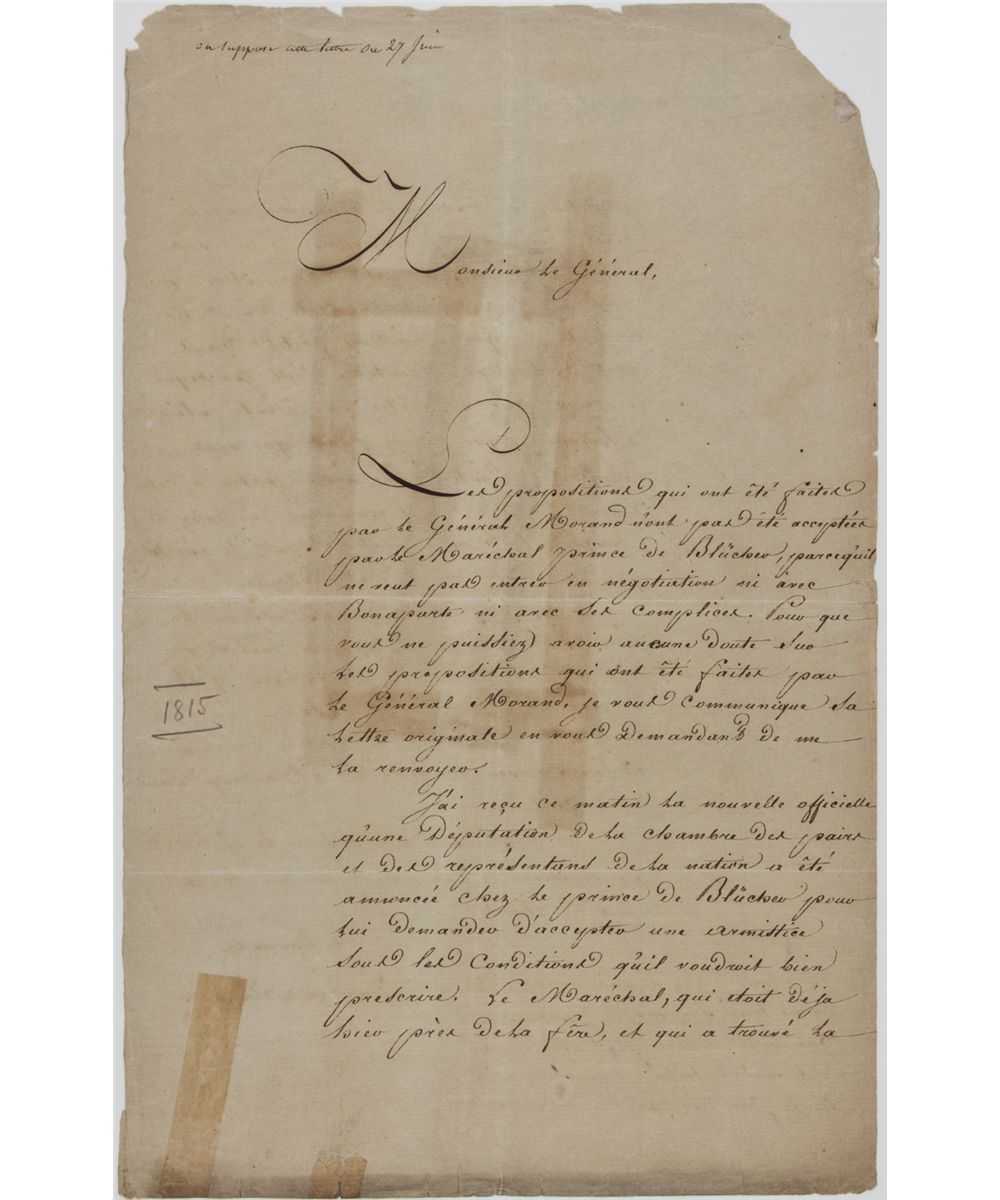 on suppose cette lettre du 27 Juin
Monsieur le Général,
Les propositions qui ont êté faites
par le Général Morand n'ont pas êté acceptées
par le Maréchal prince de Blücher, parcequ'il
ne veut pas entrer en négotiation ni avec
Bonaparte ni avec ses complices. Pour que
vous ne puissiez avoir aucune doute sur
les propositions qui ont êté faites par
le Général Morand, je vous communique sa
lettre originale en vous demandant de me
la renvoyer.
J'ai reçu ce matin la nouvelle officielle
qu'une Députation de la chambre des pairs
et des représentans de la nation a êté
annoncée chez le prince de Blücher pour
lui demander d'accepter une armistice
sous les conditions qu'il voudroit bien
prescrire. Le Maréchal, qui etoit déja
hier près de la fère, et qui a trouvé la
1815